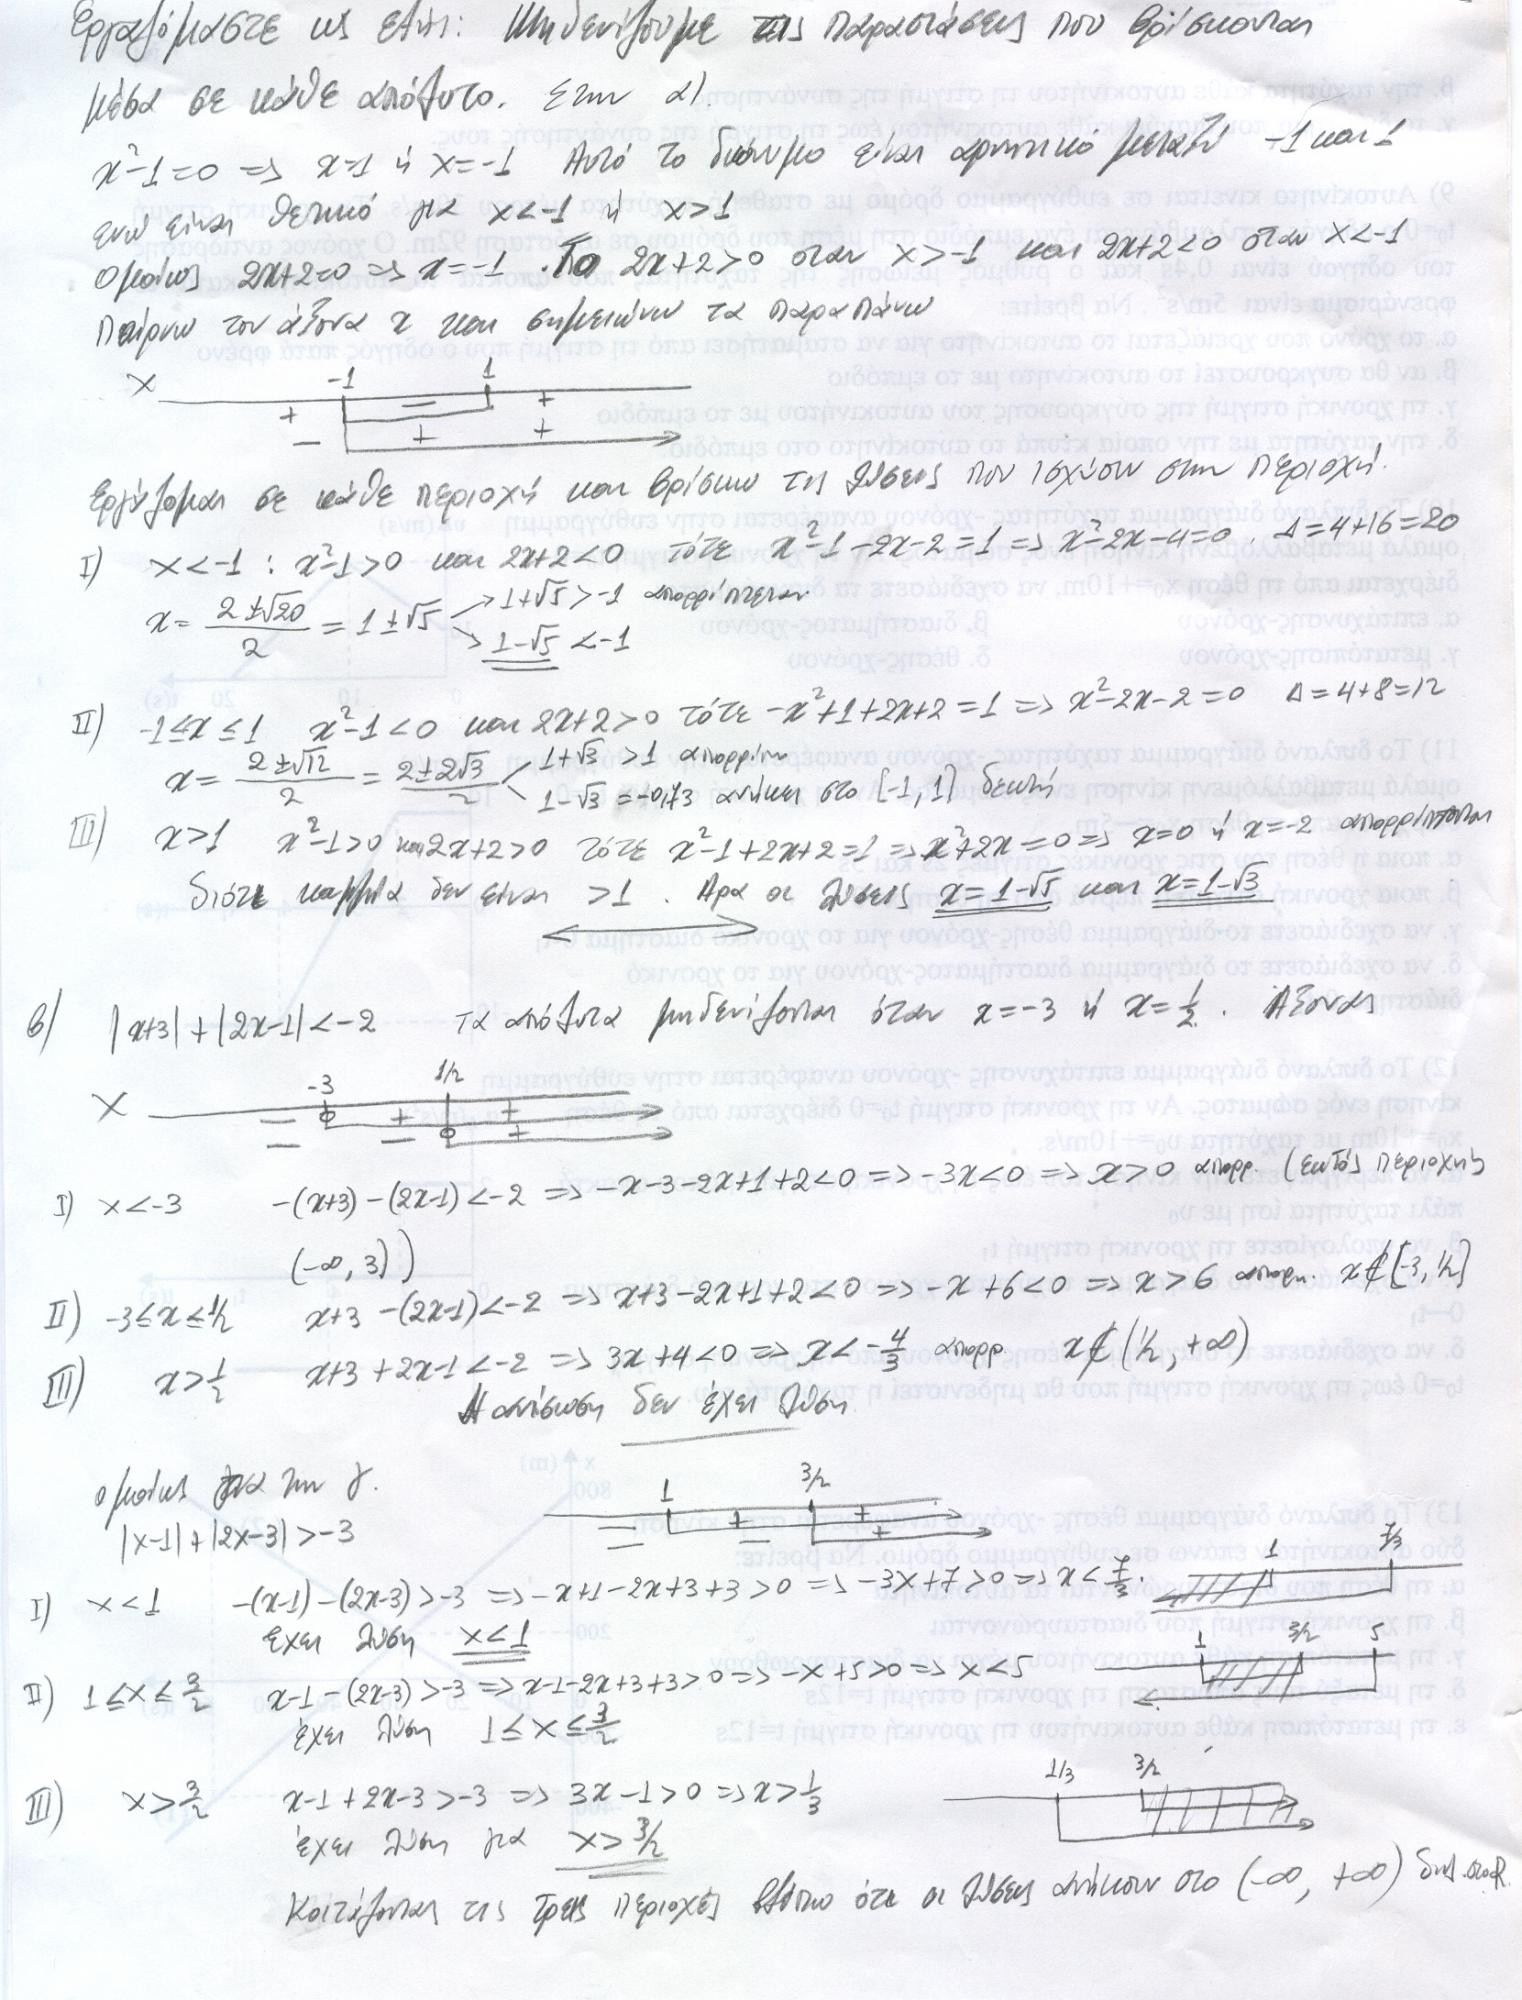 Εργαζόμαστε ως εξής: Μηδενίζουμε τις παραστάσεις που βρίσκονται
μέσα σε κάθε απόλυτο. Στην α)
x²-1=0 => x=1 ή x=-1 Αυτό το διώνυμο είναι αρνητικό μεταξύ -1 και 1
ενώ είναι θετικό για x<-1 ή x>1
Ομοίως 2x+2=0 => x=-1. Το 2x+2>0 όταν x>-1 και 2x+2<0 όταν x<-1
Παίρνω τον άξονα x και σημειώνω τα παραπάνω
x -1 1
+ − +
− + +
Εργάζομαι σε κάθε περιοχή και βρίσκω τις λύσεις που ισχύουν στην περιοχή.
I) x<-1 : x²-1>0 και 2x+2<0 τότε x²-1-2x-2=1 => x²-2x-4=0. Δ=4+16=20
x= 2±√20 / 2 = 1±√5 1+√5>-1 απορρίπτεται
1-√5 <-1
II) -1≤x≤1 x²-1<0 και 2x+2>0 τότε -x²+1+2x+2=1 => x²-2x-2=0 Δ=4+8=12
x= 2±√12 / 2 = 2±2√3 / 2 1+√3 >1 απορρίπτ
1-√3 =-0,73 ανήκει στο [-1,1] δεκτή
III) x>1 x²-1>0 και 2x+2>0 τότε x²-1+2x+2=1 => x²+2x=0 => x=0 ή x=-2 απορρίπτονται
διότι καμμία δεν είναι >1. Άρα οι λύσεις x=1-√5 και x=1-√3
β) |x+3|+|2x-1|<-2 τα απόλυτα μηδενίζονται όταν x=-3 ή x=1/2. Άξονας
x -3 1/2
− + +
− − +
I) x<-3 -(x+3)-(2x-1)<-2 => -x-3-2x+1+2<0 => -3x<0 => x>0 απορρ. (εκτός περιοχής
(-∞, 3))
II) -3≤x≤1/2 x+3-(2x-1)<-2 => x+3-2x+1+2<0 => -x+6<0 => x>6 απορρ. x∉[-3, 1/2]
III) x>1/2 x+3+2x-1<-2 => 3x+4<0 => x<-4/3 απορρ x∉(1/2, +∞)
Η ανίσωση δεν έχει λύση
ομοίως για την γ.
1 3/2
− + +
− − +
|x-1|+|2x-3|>-3
I) x<1 -(x-1)-(2x-3)>-3 => -x+1-2x+3+3>0 => -3x+7>0 => x<7/3. 1 7/3
έχει λύση x<1
II) 1≤x≤3/2 x-1-(2x-3)>-3 => x-1-2x+3+3>0 => -x+5>0 => x<5 1 3/2 5
έχει λύση 1≤x≤3/2
III) x>3/2 x-1+2x-3>-3 => 3x-1>0 => x>1/3 1/3 3/2
έχει λύση για x>3/2
Κοιτάζοντας τις τρεις περιοχές βλέπω ότι οι λύσεις ανήκουν στο (-∞, +∞) δηλ. στο R.